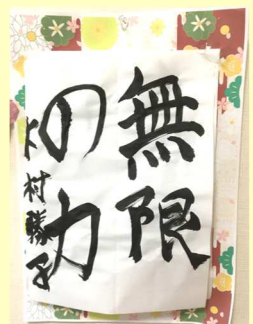 無限
の力
村勝子